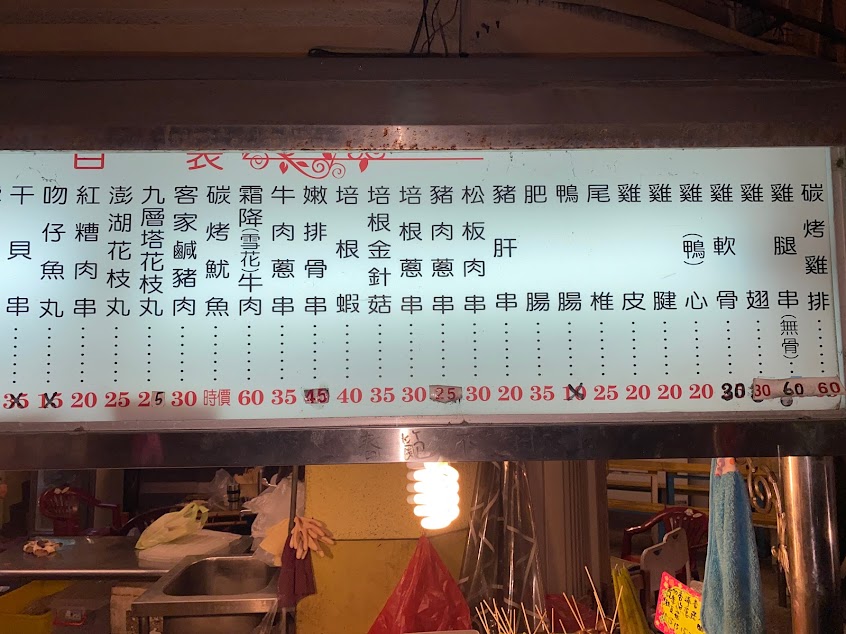 表
碳烤雞排⋯⋯60
雞腿串(無骨)⋯⋯60
雞翅⋯⋯30
雞軟骨⋯⋯30
雞(鴨)心⋯⋯20
雞腱⋯⋯20
雞皮⋯⋯20
尾椎⋯⋯25
鴨腸⋯⋯10
肥腸⋯⋯35
豬肝串⋯⋯20
松板肉串⋯⋯30
豬肉蔥串⋯⋯25
培根蔥串⋯⋯30
培根金針菇⋯⋯35
培根蝦⋯⋯40
嫩排骨串⋯⋯45
牛肉蔥串⋯⋯35
霜降(雪花)牛肉⋯⋯60
碳烤魷魚⋯⋯時價
客家鹹豬肉⋯⋯30
九層塔花枝丸⋯⋯25
澎湖花枝丸⋯⋯25
紅糟肉串⋯⋯20
吻仔魚丸⋯⋯15
干貝串⋯⋯35